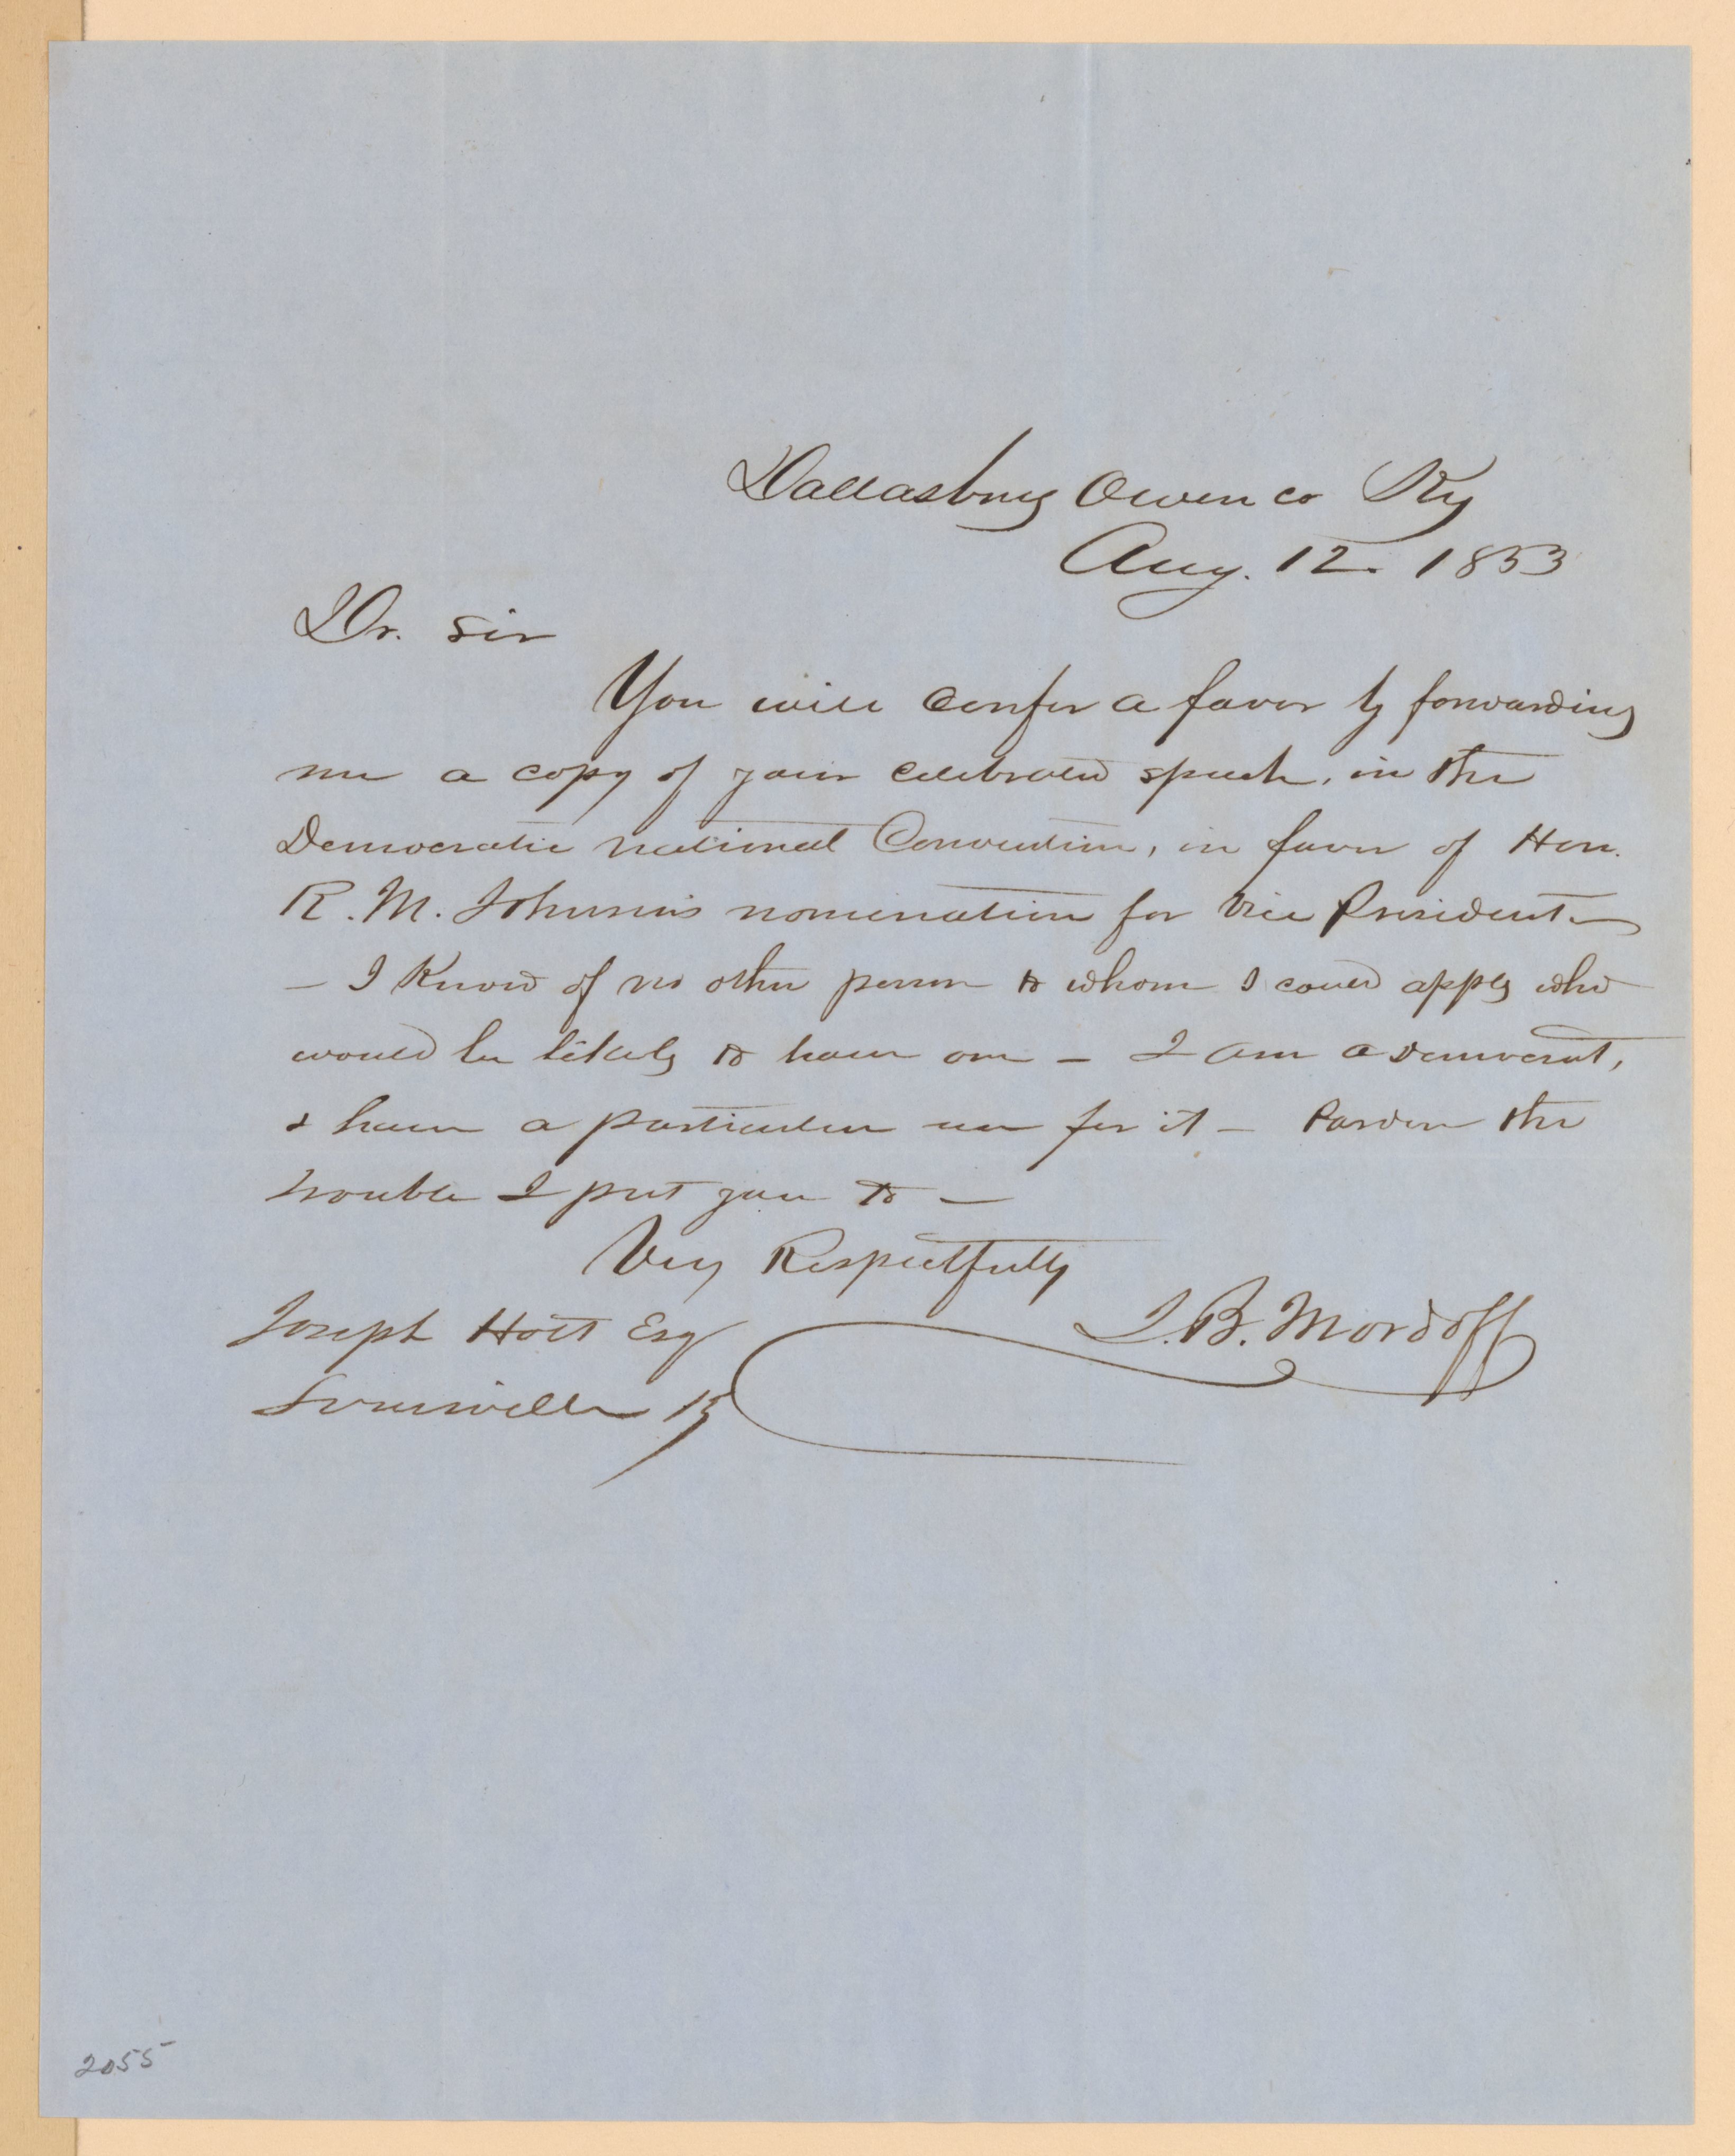 Dallasburg Owen co Ky
Aug. 12. 1853
Dr. Sir
You will confer a favor by forwarding
me a copy of your celebrated speech, in the
Democratic National Convention, in favor of Hon.
R. M. Johnson's nomination for Vice President.—
— I know of no other person to whom I could apply who
would be likely to have one — I am a democrat,
& have a particular use for it — Pardon the
trouble I put you to —
Very Respectfully
J. B. Mordoff
Joseph Holt Esq
Louisville Ky
2055